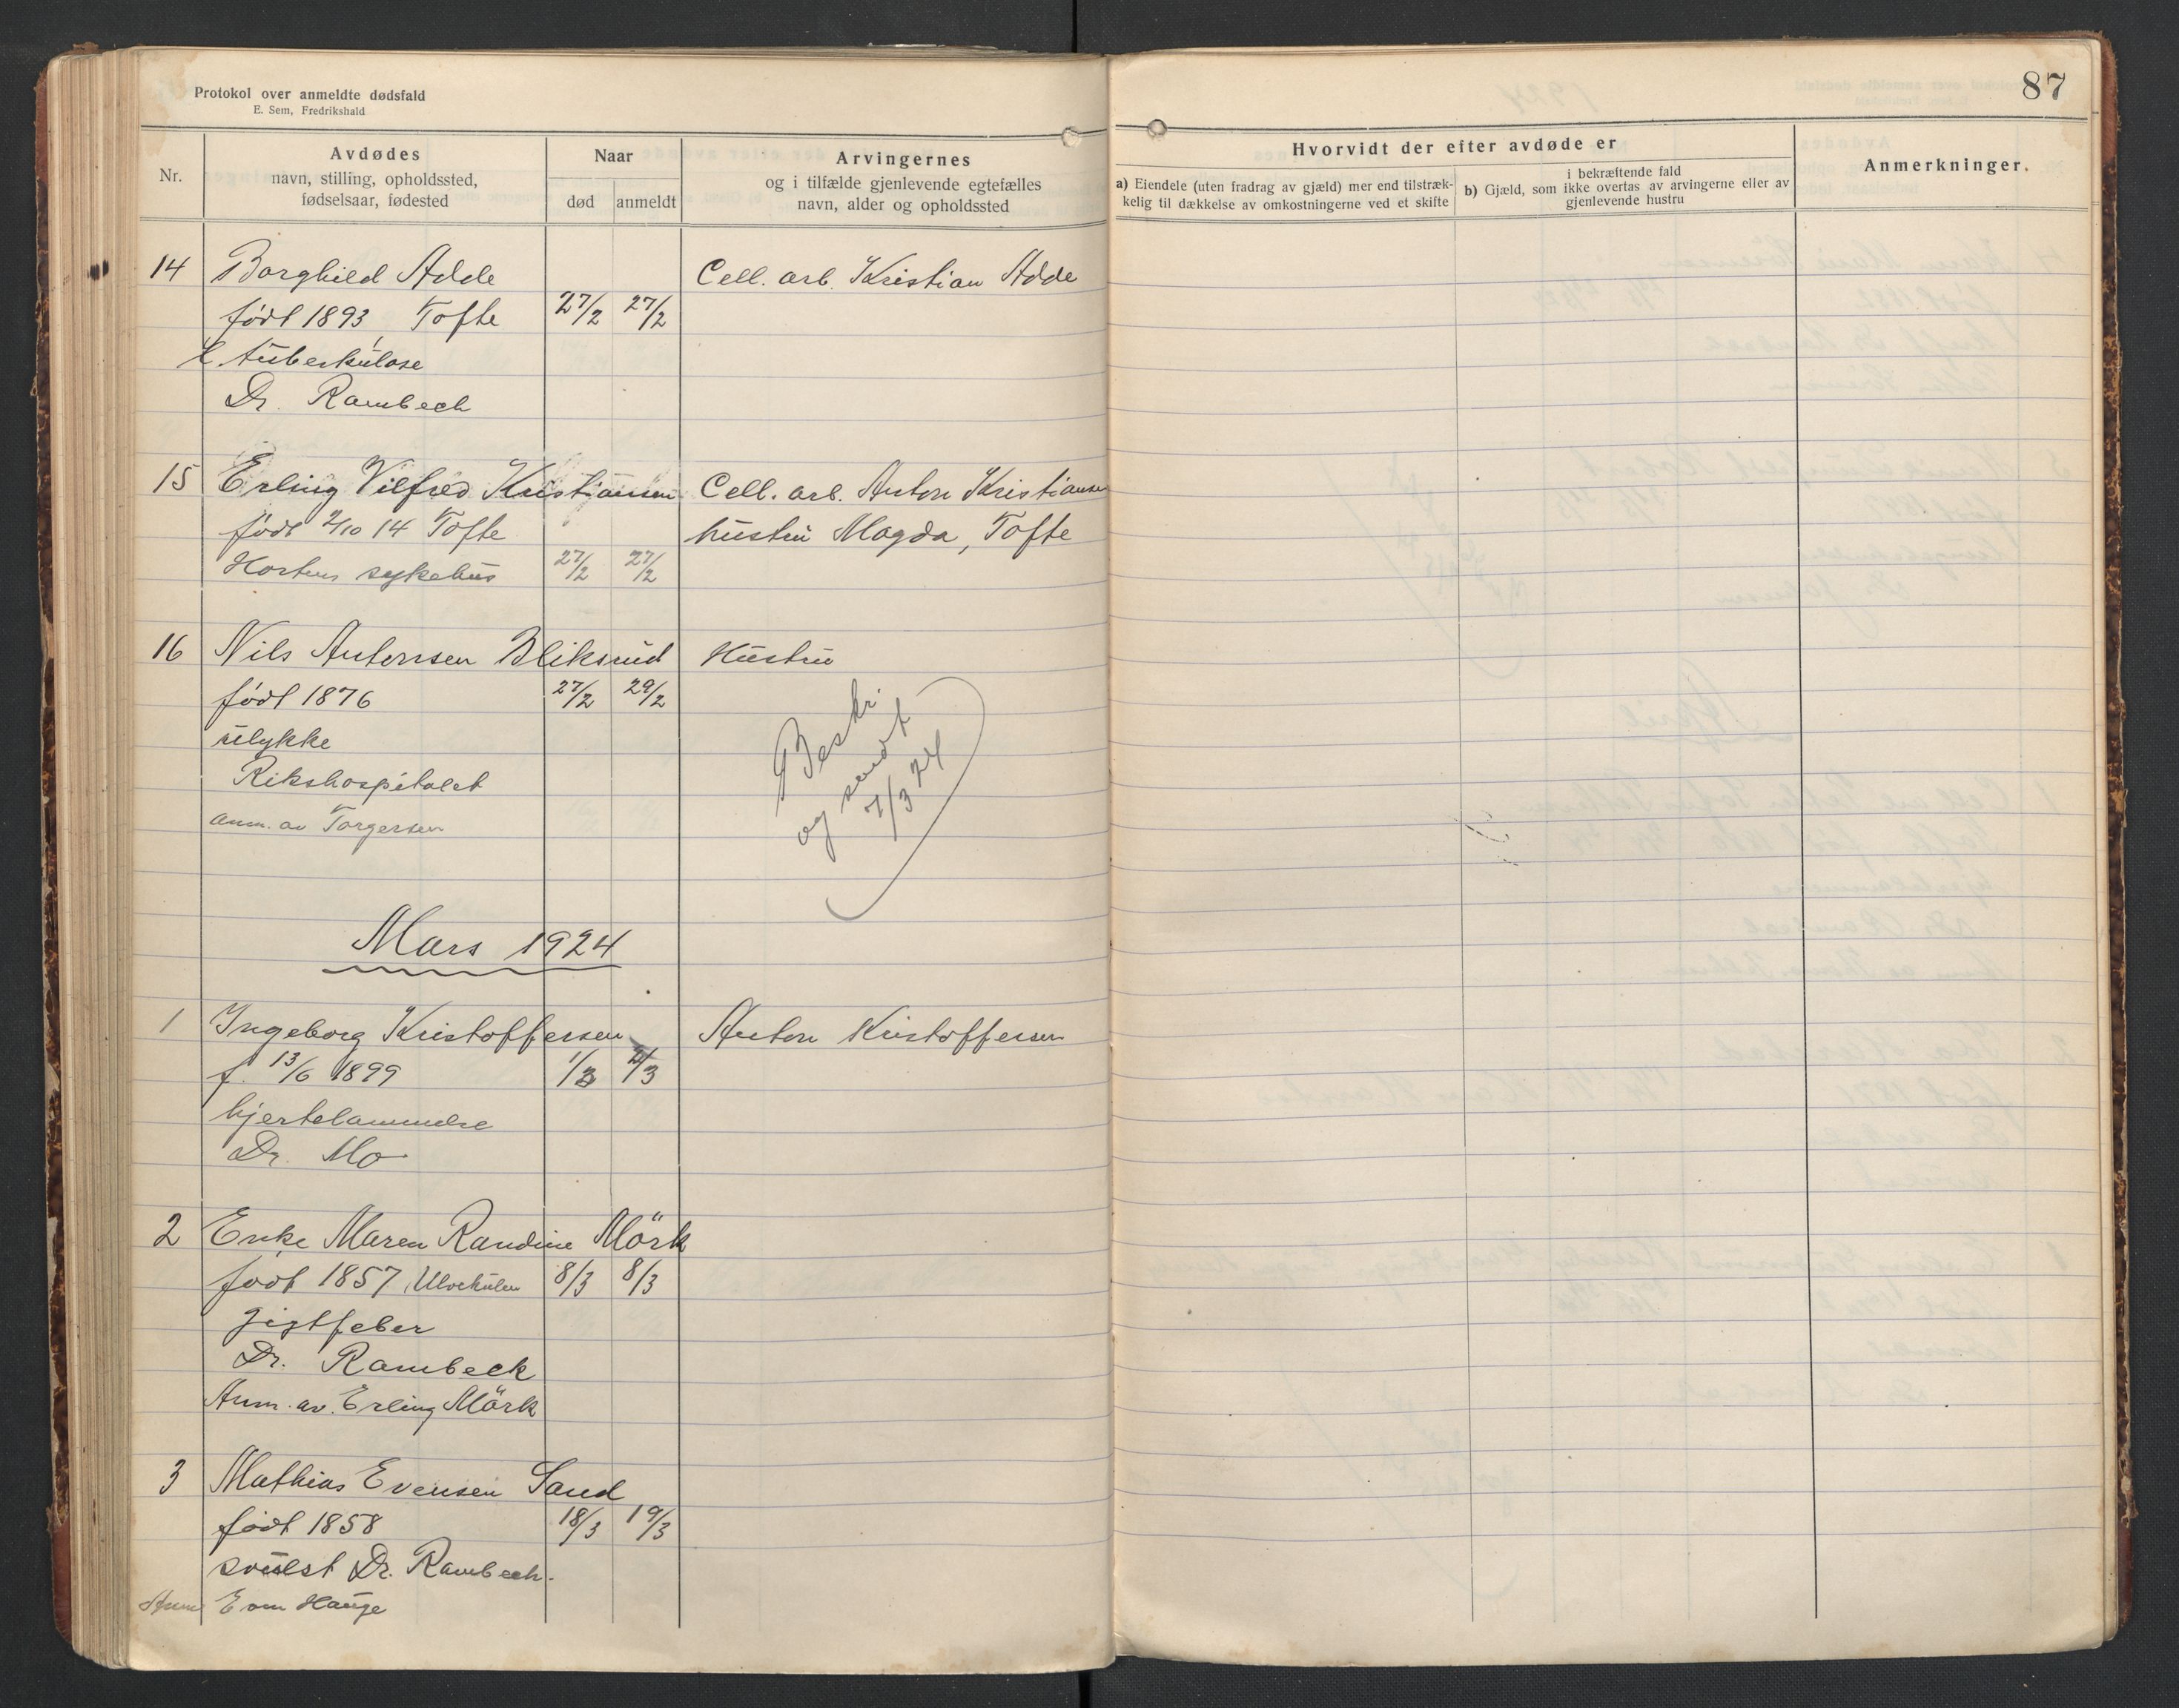 Protokol over anmeldte dødsfald
E. Sem, Fredrikshald
87
Nr.
Avdødes
navn, stilling, opholdssted,
fødselsaar, fødested
Naar
død
anmeldt
Arvingernes
og i tilfælde gjenlevende egtefælles
navn, alder og opholdssted
Hvorvidt der efter avdøde er
a) Eiendele (uten fradrag av gjæld) mer end tilstræk-
kelig til dækkelse av omkostningerne ved et skifte
i bekræftende fald
b) Gjæld, som ikke overtas av arvingerne eller av
gjenlevende hustru
Anmerkninger.
14 Borghild Adde Cell. arb. Kristian Adde
født 1893, Tofte 27/2 27/2
tuberkulose
Dr. Rambech
15 Erling Vilfred Kristiansen Cell. arb. Anton Kristiansen
født 2/10 14 Tofte hustru Magda, Tofte
Hortens sykehus 27/2 27/2
16 Nils Antonsen Bliksrud Hustru
født 1876 27/2 29/2
ulykke
Rikshospitalet
anm. av Torgersen
Beskr.
og sendt
7/3 24
Mars 1924
1 Ingeborg Kristoffersen Anton Kristoffersen
f. 13/6 1899 1/3 4/3
hjertelammelse
Dr. Mo
2 Enke Maren Randine Mörk
født 1857, Ulvekulen 8/3 8/3
gigtfeber
Dr. Rambeck
Anm. av. Erling Mörk
3 Mathias Evensen Sand
født 1858 18/3 19/3
svulst Dr. Rambech.
Anm E om Hauge